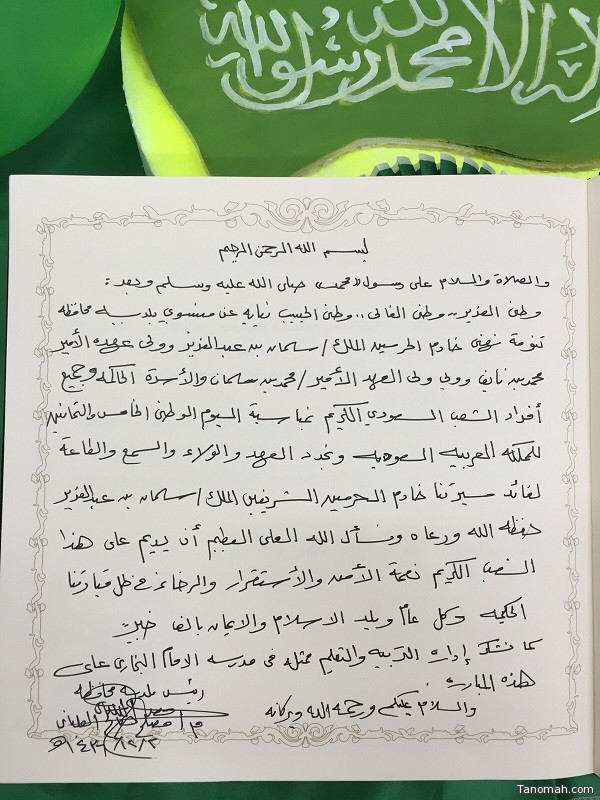 لا إله إلا الله محمد رسول الله
بسم الله الرحمن الرحيم
والصلاة والسلام على رسوله "محمد" صلى الله عليه وسلم وبعد :
وطني العزيز .. وطني الغالي .. وطني الحبيب نيابه عن منسوبي بلديه محافظه
تنومة نهنئ خادم الحرمين الملك / سلمان بن عبدالعزيز وولي عهده الأمير
محمد بن نايف وولي ولي العهد الأمير / محمد بن سلمان والأسرة الحاكمه وجميع
أفراد الشعب السعودي الكريم بمناسبة اليوم الوطني الخامس والثمانين
للمملكه العربيه السعوديه ونجدد العهد والولاء والسمع والطاعة
لقائد مسيرتنا خادم الحرمين الشريفين الملك / سلمان بن عبدالعزيز
حفظه الله ورعاه ونسأل الله العلي العظيم أن يديم على هذا
الشعب الكريم نعمة الأمن والأستقرار والرخاء في ظل قيادتنا
الحكيمه وكل عام وبلد الاسلام والايمان بالف خير
كما نشكر إداره التربيه والتعليم ممثله في مدرسه الامام البخاري على
هذه المبادره
والسلام عليكم ورحمه الله وبركاته
رئيس بلديه محافظه
Tanomah.com